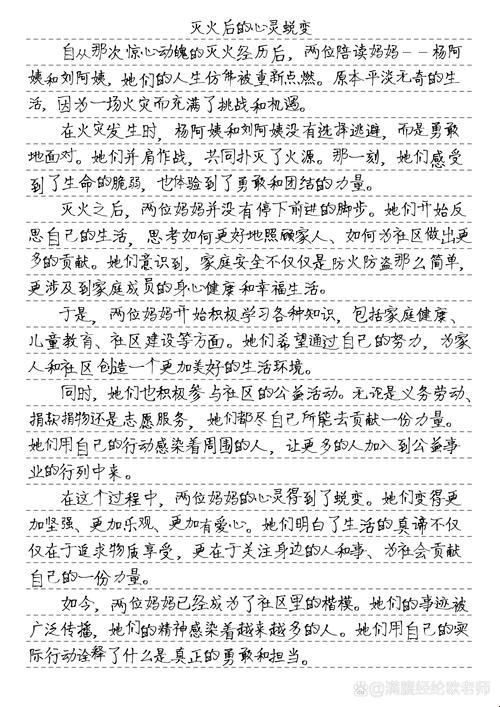 灭火后的心灵蜕变
自从那次惊心动魄的灭火经历后，两位陪读妈妈——杨阿
姨和刘阿姨，她们的人生仿佛被重新点燃。原本平淡无奇的生
活，因为一场火灾而充满了挑战和机遇。
在火灾发生时，杨阿姨和刘阿姨没有选择逃避，而是勇敢
地面对。她们并肩作战，共同扑灭了火源。那一刻，她们感受
到了生命的脆弱，也体验到了勇敢和团结的力量。
灭火之后，两位妈妈并没有停下前进的脚步。她们开始反
思自己的生活，思考如何更好地照顾家人、如何为社区做出更
多的贡献。她们意识到，家庭安全不仅仅是防火防盗那么简单，
更涉及到家庭成员的身心健康和幸福生活。
于是，两位妈妈开始积极学习各种知识，包括家庭健康、
儿童教育、社区建设等方面。她们希望通过自己的努力，为家
人和社区创造一个更加美好的生活环境。
同时，她们也积极参与社区的公益活动。无论是义务劳动、
捐款捐物还是志愿服务，她们都尽自己所能去贡献一份力量。
她们用自己的行动感染着周围的人，让更多的人加入到公益事
业的行列中来。
在这个过程中，两位妈妈的心灵得到了蜕变。她们变得更
加坚强、更加乐观、更加有爱心。她们明白了生活的真谛不仅
仅在于追求物质享受，更在于关注身边的人和事、为社会贡献
自己的一份力量。
如今，两位妈妈已经成为了社区里的楷模。她们的事迹被
广泛传播，她们的精神感染着越来越多的人。她们用自己的实
际行动诠释了什么是真正的勇敢和担当。
@满腹经纶欧老师